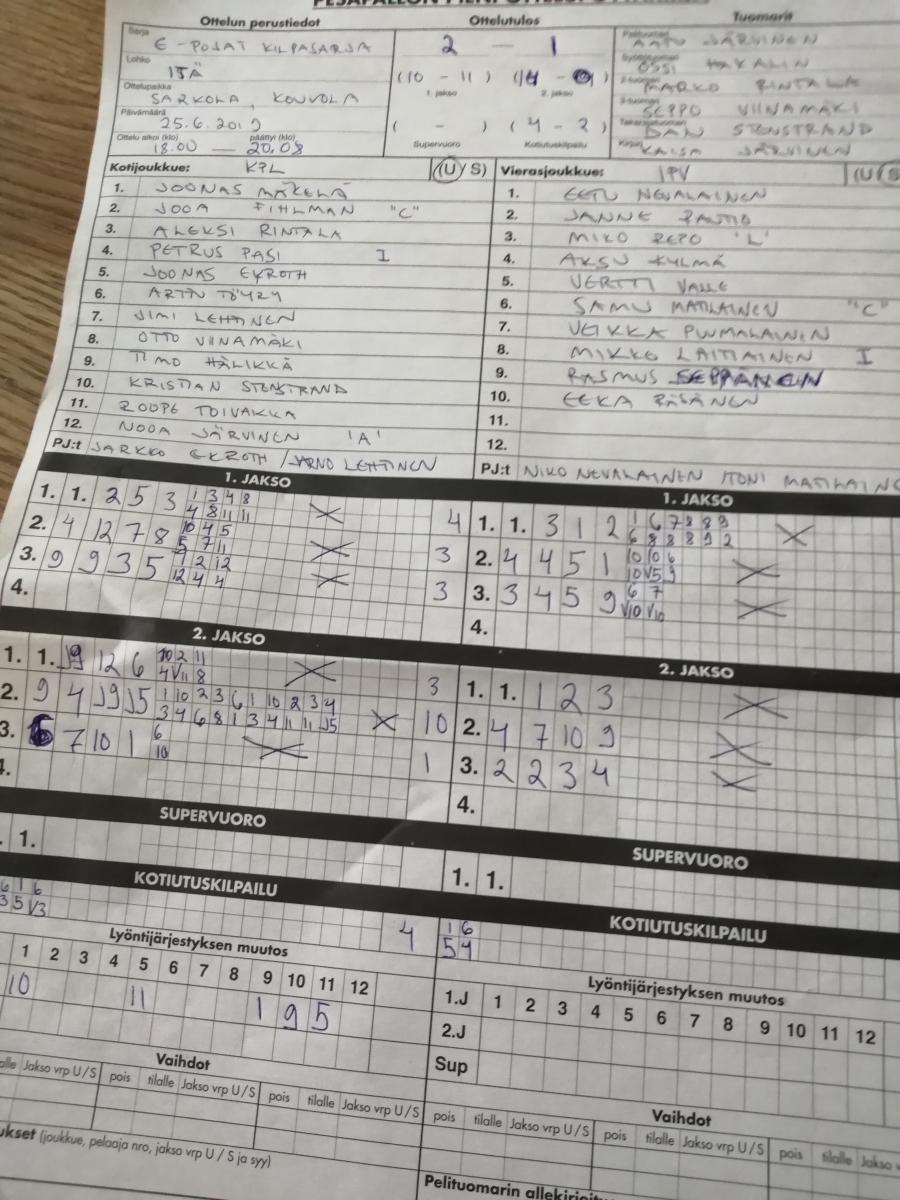 Ottelun perustiedot
Sarja
E-POJAT KILPASARJA
Lohko
ITÄ
Ottelupaikka
SARKOLA, KOUVOLA
Päivämäärä
25.6.2019
Ottelu alkoi (klo) päättyi (klo)
18.00 — 20.08
Ottelutulos
2 — 1
(10 - 11)
1. jakso 2. jakso
( - ) (4 - 2)
Supervuoro Kotiutuskilpailu
Tuomarit
AATU JÄRVINEN
OSSI HAKALIN
MARKO RINTALA
SEPPO VIINAMÄKI
DAN STENSTRAND
KAISA JÄRVINEN
Kotijoukkue: KPL (U/S)
1. JOONAS MÄKELÄ
2. JOOA FIHLMAN "C"
3. ALEKSI RINTALA
4. PETRUS PASI I
5. JOONAS EKROTH
6. ARTTU TÖYRY
7. JIMI LEHTINEN
8. OTTO VIINAMÄKI
9. TIMO HÄLIKKÄ
10. KRISTIAN STENSTRAND
11. ROOPE TOIVAKKA
12. NOOA JÄRVINEN 'A'
PJ:t JARKKO EKROTH / JARNO LEHTINEN
Vierasjoukkue: IPV (U/S
1. EETU NEVALAINEN
2. JANNE RAUTIO
3. MIKO REPO 'L'
4. AKSU KYLMÄ
5. VERTTI VALLE
6. SAMU MATILAINEN "C"
7. VEIKKA PUUMALAINEN
8. MIKKO LAITIAINEN I
9. RASMUS SEPPÄNEN
10. EEKA RÄSÄNEN
11.
12.
PJ:t NIKO NEVALAINEN / TONI MATILAINE
1. JAKSO
1. 1. 2 5 3 1 3 4 8 4
4 8 11 11
2. 4 12 7 8 10 4 5 3
5 7 11
3. 9 9 3 5 1 2 12 3
12 4 4
4.
1. JAKSO
1. 1. 3 1 2 1 6 7 8 8 9
6 8 8 8 9 2
2. 4 4 5 1 10 10 6
10 V5 9
3. 3 4 5 9 6 7
V10 V10
4.
2. JAKSO
1. 1. J9 12 6 10 2 11 3
4 V11 8
2. 9 4 J9 J5 1 10 2 3 6 1 10 2 3 4 10
3 4 6 8 1 3 4 11 11 J5
3. 7 10 1 6 1
10
2. JAKSO
1. 1. 1 2 3
2. 4 7 10 9
3. 2 2 3 4
4.
SUPERVUORO
1.
SUPERVUORO
1. 1.
KOTIUTUSKILPAILU
6 1 6 4
3 5 V3
KOTIUTUSKILPAILU
1 6
5 4
Lyöntijärjestyksen muutos
1 2 3 4 5 6 7 8 9 10 11 12
10 11 1 9 5
Lyöntijärjestyksen muutos
1.J 1 2 3 4 5 6 7 8 9 10 11 12
2.J
Sup
Vaihdot
Jakso vrp U/S pois tilalle Jakso vrp U/S pois tilalle Jakso vrp U/S
Vaihdot
pois tilalle Jakso vrp U/S pois tilalle Jakso vrp U/S pois tilalle Jakso v
ukset (joukkue, pelaaja nro, jakso vrp U / S ja syy)
Pelituomarin allekirjoitu